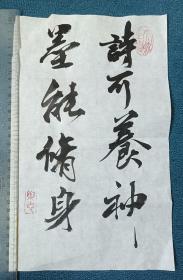 詩可養神
墨能脩身